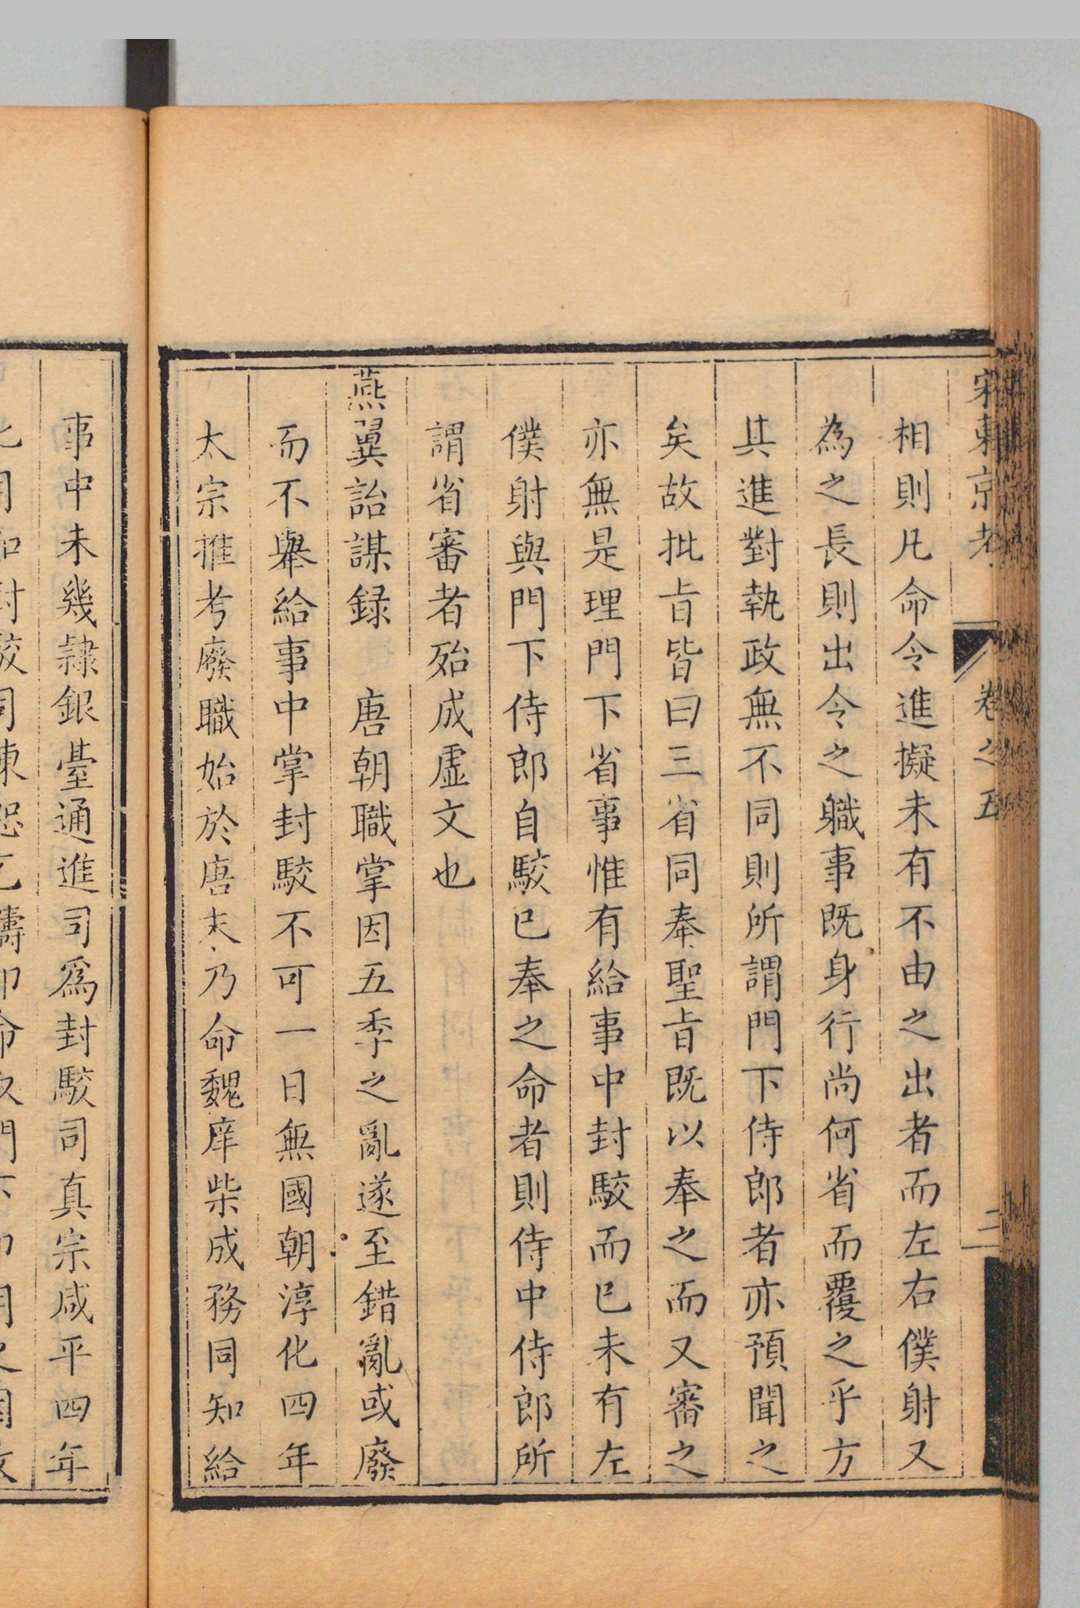 宋東京考 卷之五 二
相則凡命令進擬未有不由之出者而左右僕射又
為之長則出令之職事既身行尚何省而覆之乎方
其進對執政無不同則所謂門下侍郎者亦預聞之
矣故批旨皆曰三省同奉聖旨既以奉之而又審之
亦無是理門下省事惟有給事中封駮而已未有左
僕射與門下侍郎自駮已奉之命者則侍中侍郎所
謂省審者殆成虛文也
燕翼詒謀録 唐朝職掌因五季之亂遂至錯亂或廢
而不舉給事中掌封駮不可一日無國朝淳化四年
太宗推考廢職始於唐末乃命魏庠柴成務同知給
事中未幾隷銀臺通進司爲封駮司真宗咸平四年